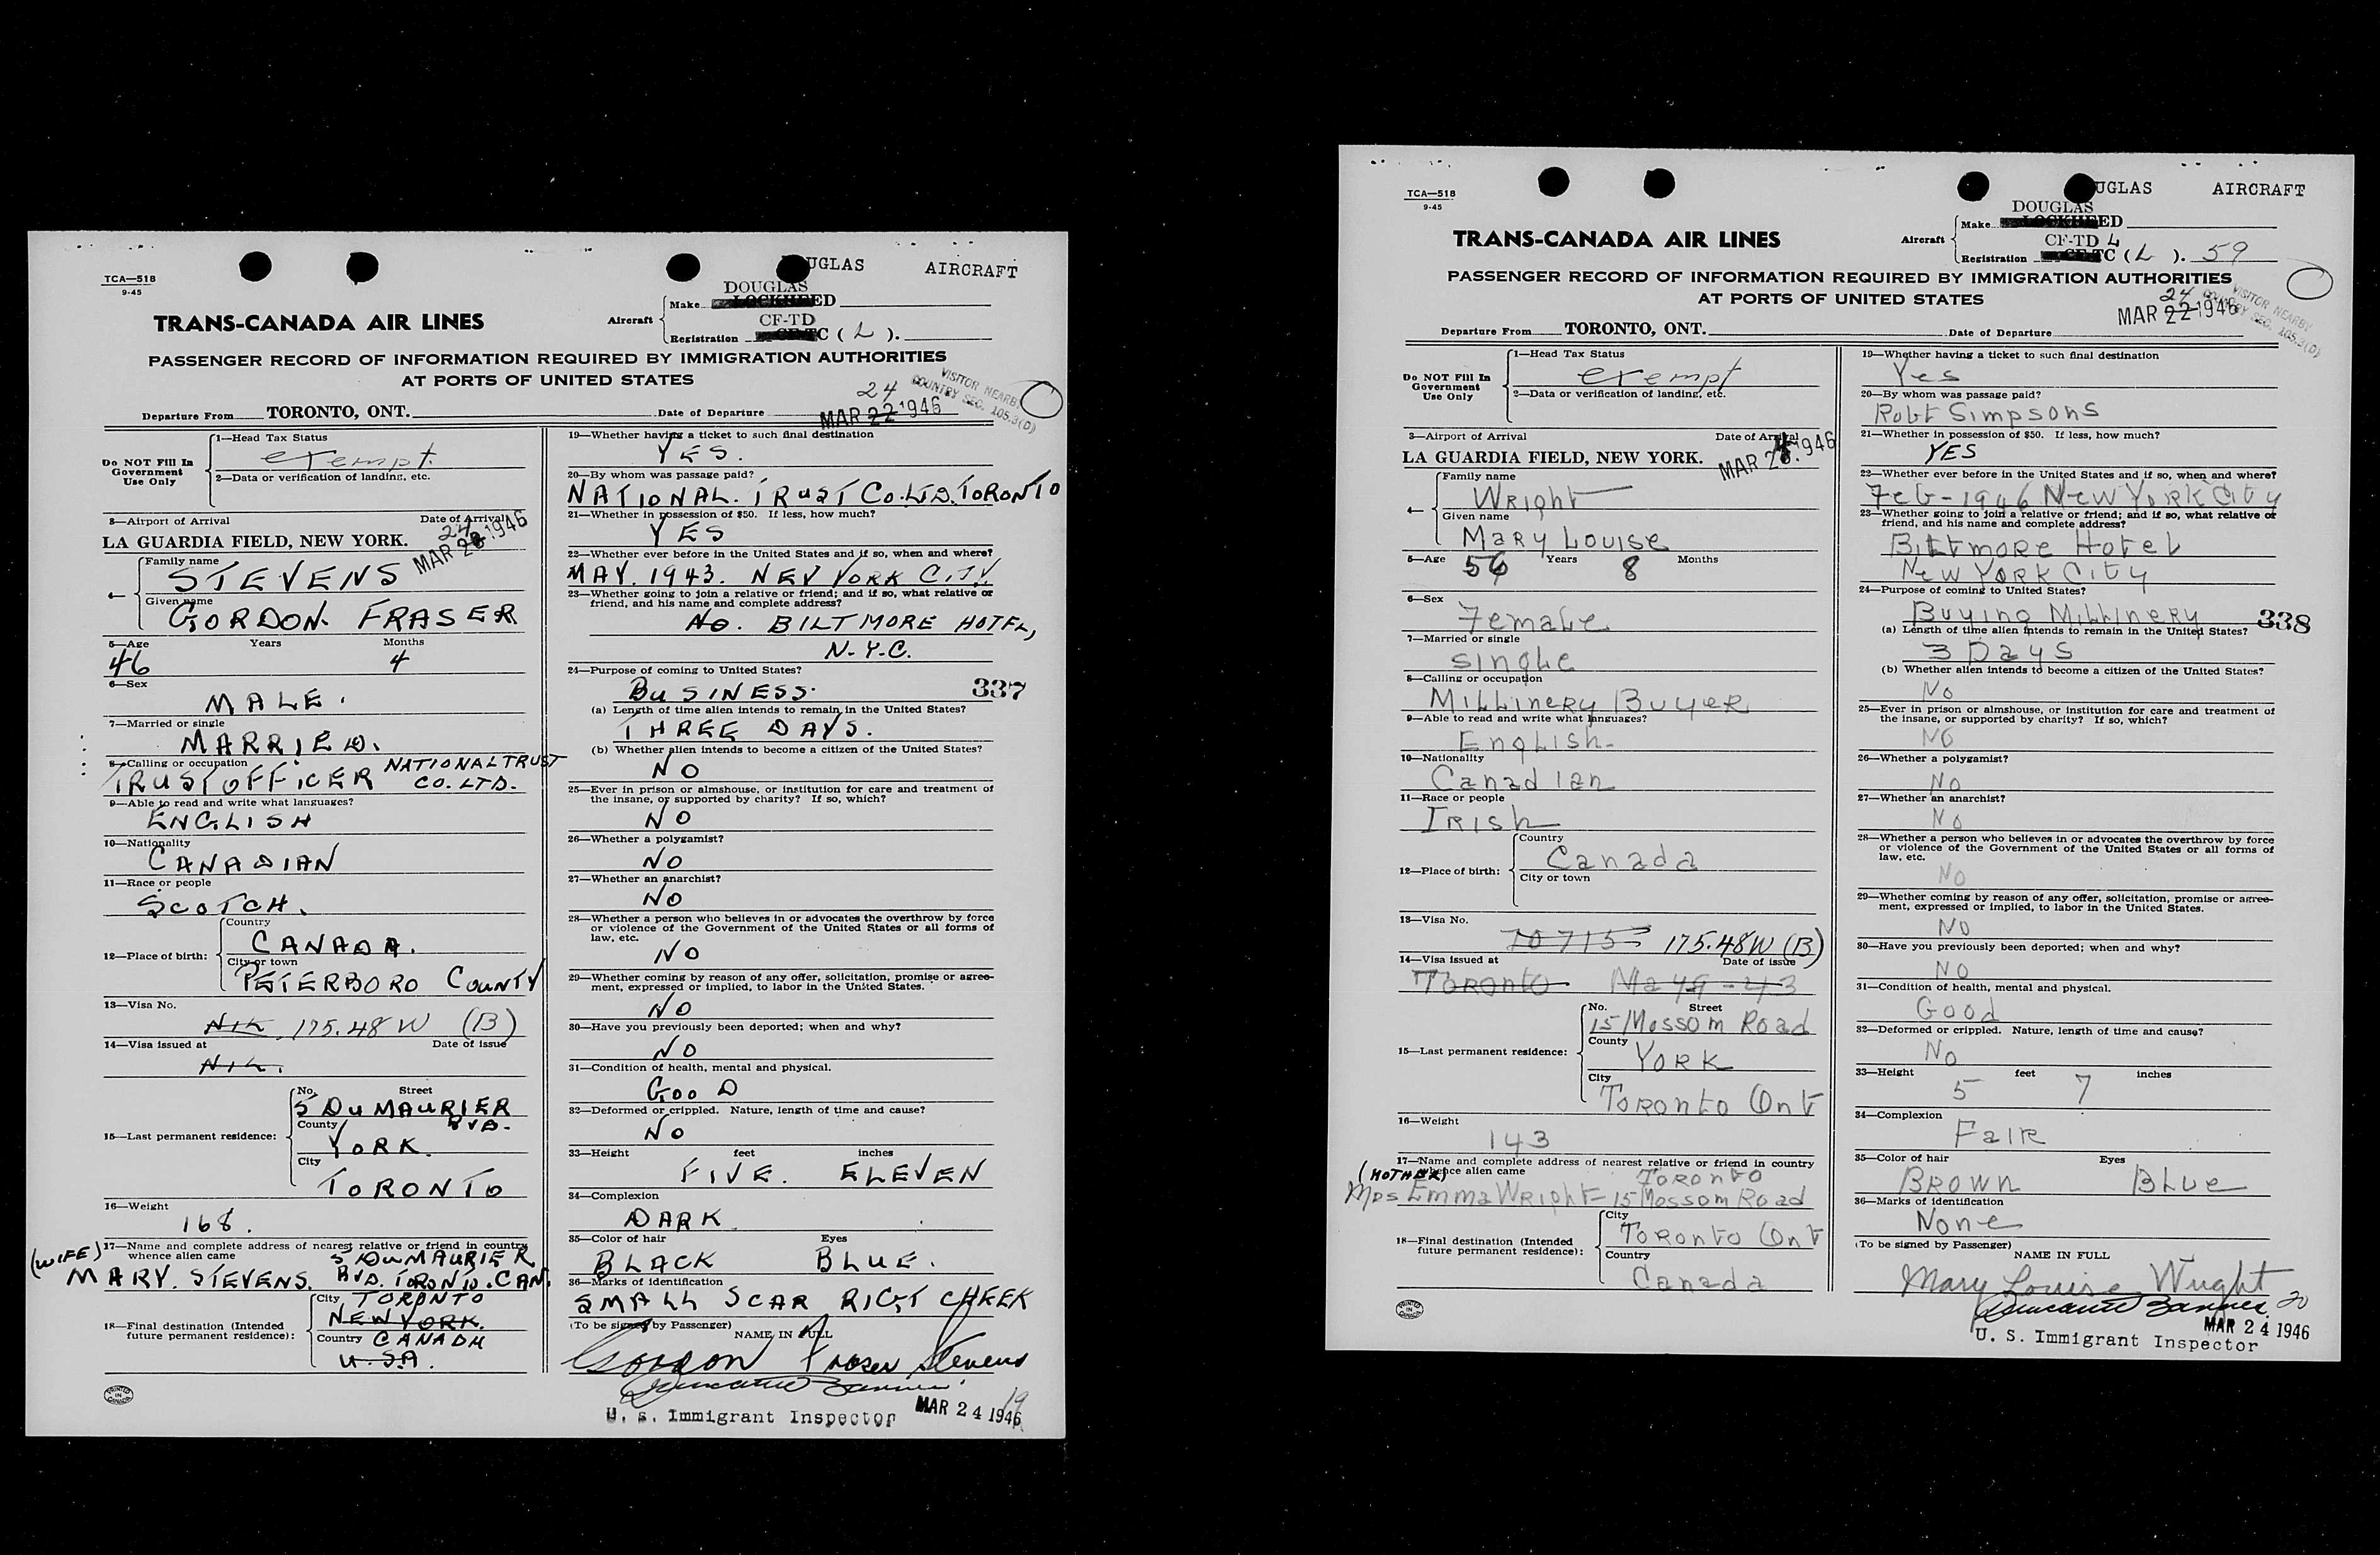 TCA—518
9-45
DOUGLAS AIRCRAFT
TRANS-CANADA AIR LINES
Aircraft
Make DOUGLAS LOCKHEED
Registration CF-TD CF-TC ( L ).
PASSENGER RECORD OF INFORMATION REQUIRED BY IMMIGRATION AUTHORITIES
AT PORTS OF UNITED STATES
VISITOR NEARBY
COUNTRY SEC. 105.3(D)
Departure From TORONTO, ONT. Date of Departure MAR 22 1946 24
Do NOT Fill In
Government
Use Only
1—Head Tax Status
exempt.
2—Data or verification of landing, etc.
3—Airport of Arrival Date of Arrival
LA GUARDIA FIELD, NEW YORK. MAR 24 1946
4—
Family name
STEVENS
Given name
GORDON FRASER
5—Age Years Months
46 4
6—Sex
MALE.
7—Married or single
MARRIED.
8—Calling or occupation
TRUST OFFICER NATIONAL TRUST
CO. LTD.
9—Able to read and write what languages?
ENGLISH
10—Nationality
CANADIAN
11—Race or people
SCOTCH.
12—Place of birth:
Country
CANADA.
City or town
PETERBORO COUNTY
13—Visa No.
NIL 175.48 W (B)
14—Visa issued at Date of issue
NIL.
15—Last permanent residence:
No. Street
5 DU MAURIER
BVD.
County
YORK.
City
TORONTO
16—Weight
168.
17—Name and complete address of nearest relative or friend in country
whence alien came
(WIFE) 5 DU MAURIER
MARY. STEVENS. BVD. TORONTO. CAN.
18—Final destination (Intended
future permanent residence):
City TORONTO
NEW YORK.
Country CANADA
U.S.A.
PRINTED
IN
CANADA
19—Whether having a ticket to such final destination
YES.
20—By whom was passage paid?
NATIONAL. TRUST CO. LTD. TORONTO
21—Whether in possession of $50. If less, how much?
YES
22—Whether ever before in the United States and if so, when and where?
MAY. 1943. NEW YORK CITY
23—Whether going to join a relative or friend; and if so, what relative or
friend, and his name and complete address?
No. BILTMORE HOTEL,
N.Y.C.
24—Purpose of coming to United States?
BUSINESS. 337
(a) Length of time alien intends to remain in the United States?
THREE DAYS.
(b) Whether alien intends to become a citizen of the United States?
NO
25—Ever in prison or almshouse, or institution for care and treatment of
the insane, or supported by charity? If so, which?
NO
26—Whether a polygamist?
NO
27—Whether an anarchist?
NO
28—Whether a person who believes in or advocates the overthrow by force
or violence of the Government of the United States or all forms of
law, etc.
NO
29—Whether coming by reason of any offer, solicitation, promise or agree-
ment, expressed or implied, to labor in the United States.
NO
30—Have you previously been deported; when and why?
NO
31—Condition of health, mental and physical.
GOOD
32—Deformed or crippled. Nature, length of time and cause?
NO
33—Height feet inches
FIVE. ELEVEN
34—Complexion
DARK
35—Color of hair Eyes
BLACK BLUE.
36—Marks of identification
SMALL SCAR RIGT CHEEK
(To be signed by Passenger)
NAME IN FULL
Gordon Fraser Stevens
U. S. Immigrant Inspector MAR 24 1946
19
TCA—518
9-45
DOUGLAS AIRCRAFT
TRANS-CANADA AIR LINES
Aircraft
Make DOUGLAS LOCKHEED
Registration CF-TD L CF-TC ( L ). 59
PASSENGER RECORD OF INFORMATION REQUIRED BY IMMIGRATION AUTHORITIES
AT PORTS OF UNITED STATES
VISITOR NEARBY
COUNTRY SEC. 105.3(D)
Departure From TORONTO, ONT. Date of Departure MAR 22 1946 24
Do NOT Fill In
Government
Use Only
1—Head Tax Status
exempt
2—Data or verification of landing, etc.
3—Airport of Arrival Date of Arrival
LA GUARDIA FIELD, NEW YORK. MAR 24 1946
4—
Family name
Wright
Given name
Mary Louise
5—Age Years Months
54 8
6—Sex
Female
7—Married or single
single
8—Calling or occupation
Millinery Buyer
9—Able to read and write what languages?
English
10—Nationality
Canadian
11—Race or people
Irish
12—Place of birth:
Country
Canada
City or town
13—Visa No.
70715 175.48W (B)
14—Visa issued at Date of issue
Toronto May 9-43
15—Last permanent residence:
No. Street
15 Mossom Road
County
York
City
Toronto Ont
16—Weight
143
17—Name and complete address of nearest relative or friend in country
whence alien came
(MOTHER) Toronto
Mrs Emma Wright - 15 Mossom Road
18—Final destination (Intended
future permanent residence):
City
Toronto Ont
Country
Canada
PRINTED
IN
CANADA
19—Whether having a ticket to such final destination
Yes
20—By whom was passage paid?
Robt Simpsons
21—Whether in possession of $50. If less, how much?
YES
22—Whether ever before in the United States and if so, when and where?
Feb-1946 New York City
23—Whether going to join a relative or friend; and if so, what relative or
friend, and his name and complete address?
Biltmore Hotel
New York City
24—Purpose of coming to United States?
Buying Millinery 338
(a) Length of time alien intends to remain in the United States?
3 Days
(b) Whether alien intends to become a citizen of the United States?
No
25—Ever in prison or almshouse, or institution for care and treatment of
the insane, or supported by charity? If so, which?
No
26—Whether a polygamist?
No
27—Whether an anarchist?
No
28—Whether a person who believes in or advocates the overthrow by force
or violence of the Government of the United States or all forms of
law, etc.
No
29—Whether coming by reason of any offer, solicitation, promise or agree-
ment, expressed or implied, to labor in the United States.
No
30—Have you previously been deported; when and why?
No
31—Condition of health, mental and physical.
Good
32—Deformed or crippled. Nature, length of time and cause?
No
33—Height feet inches
5 7
34—Complexion
Fair
35—Color of hair Eyes
Brown Blue
36—Marks of identification
None
(To be signed by Passenger)
NAME IN FULL
Mary Louise Wright
20
MAR 24 1946
U. S. Immigrant Inspector